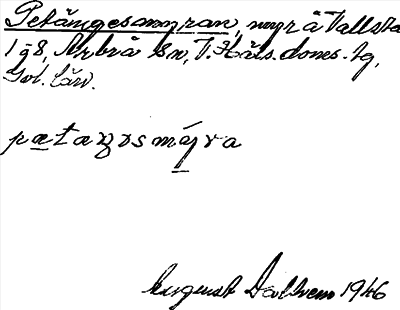 Petängesmyran, myr å Vallsta
1 g 8, Arbrå sn, V. Häls. doms. tg,
Gvl. län.
petaŋɷsmýra
August Dahlhem 1946